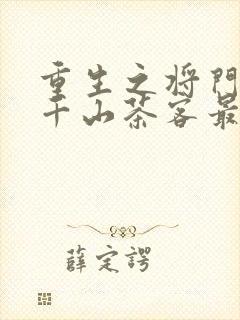 重生之将门
千山茶客最
薛定谔